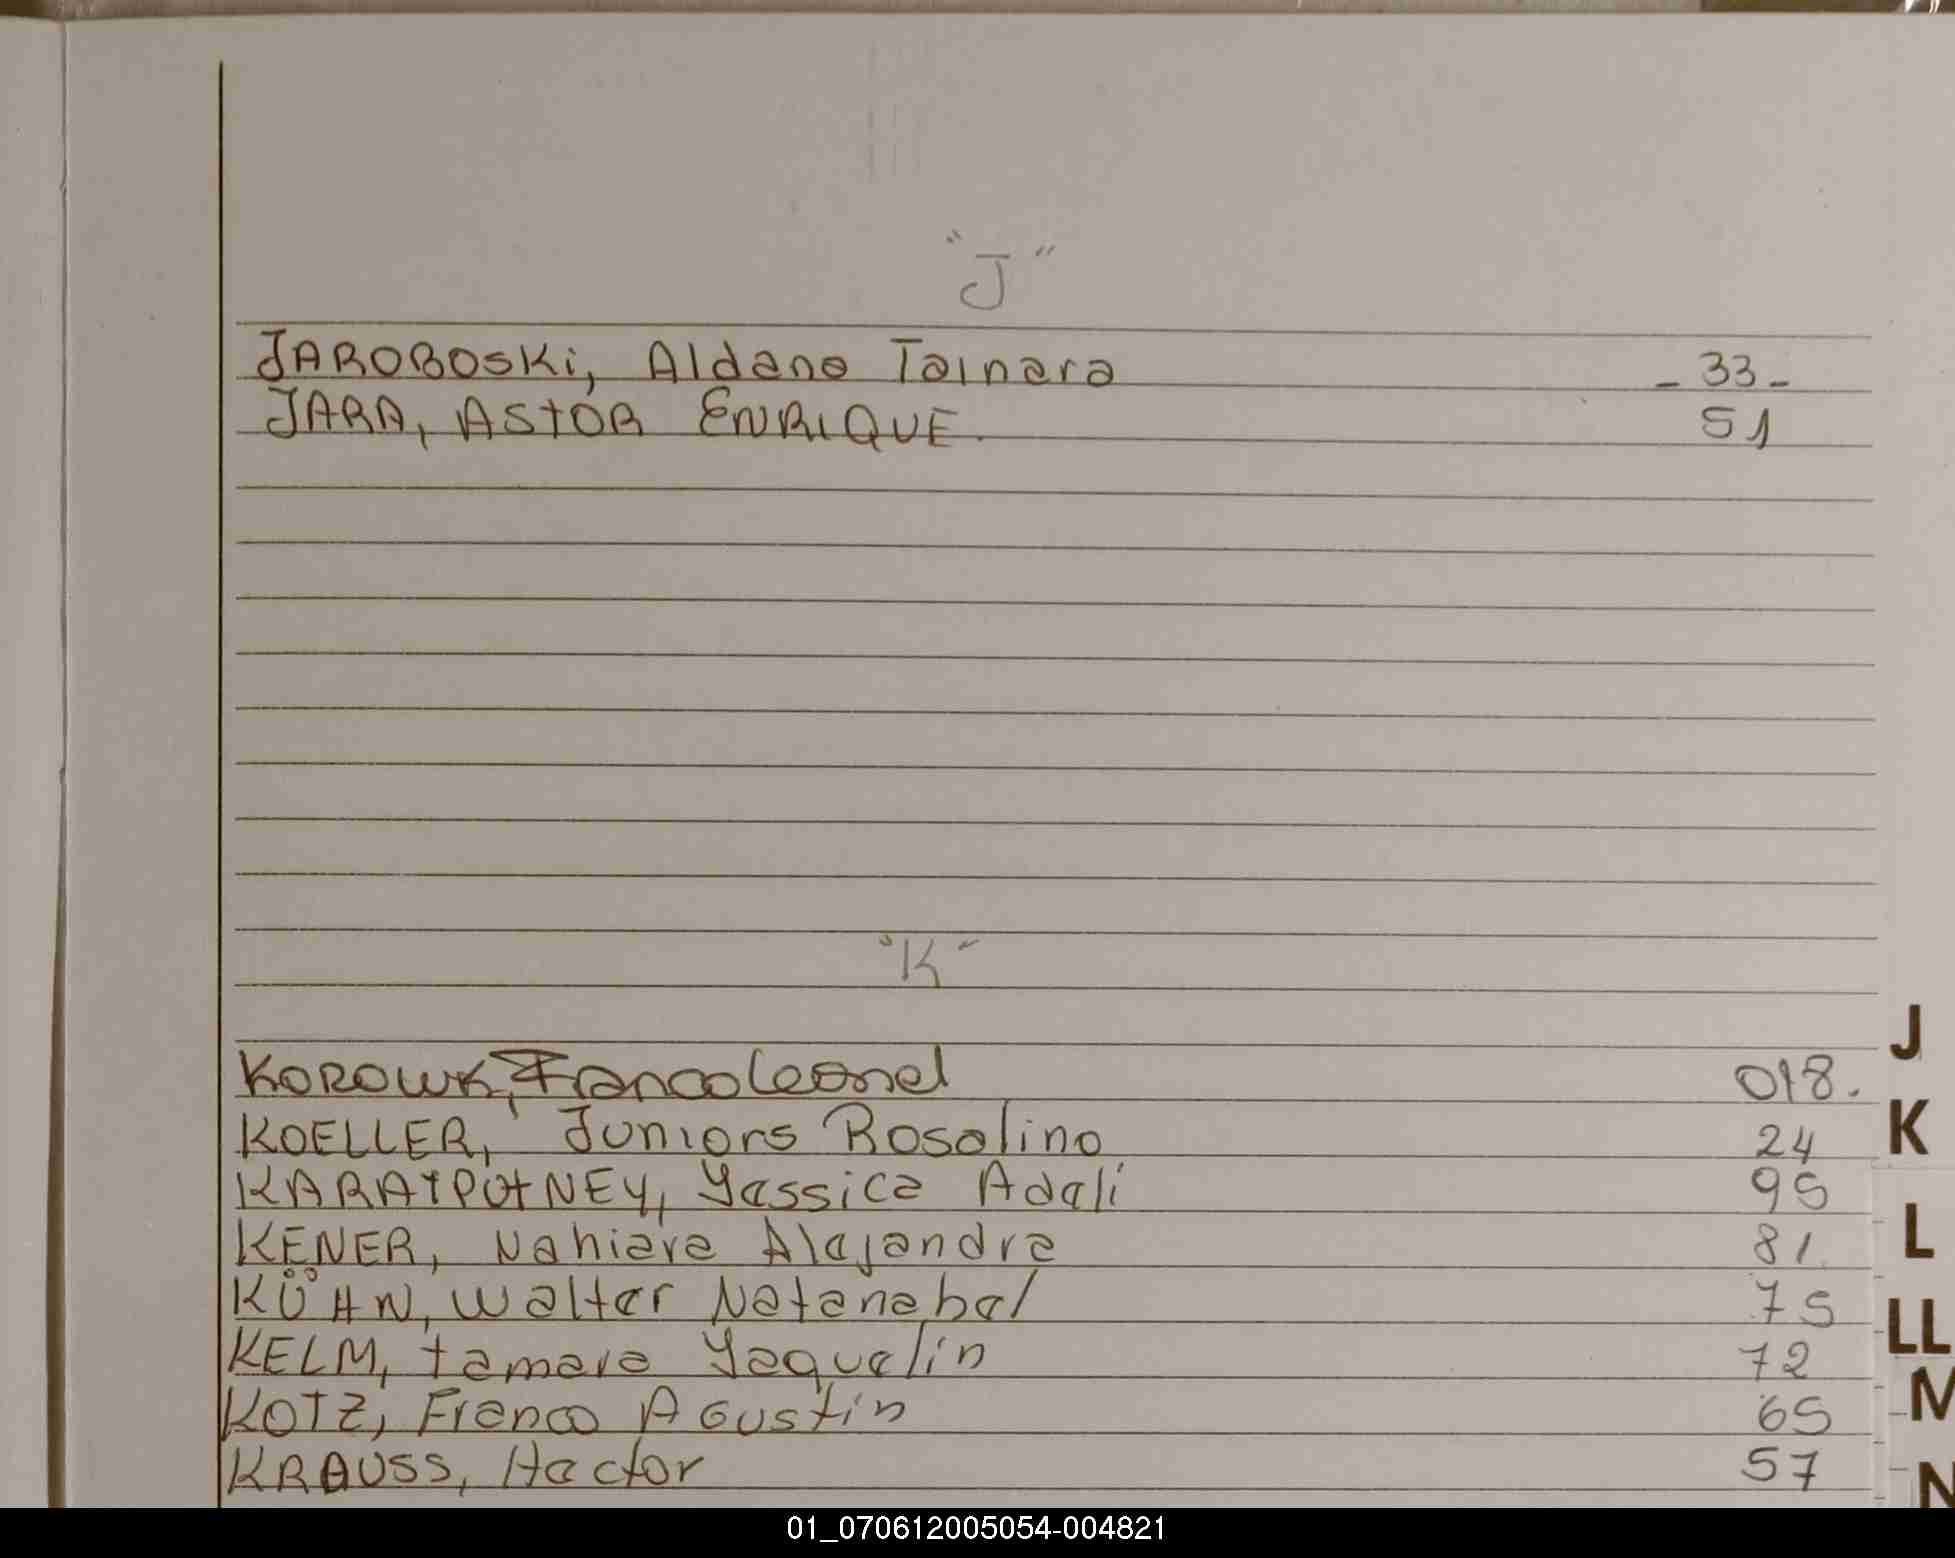 "J"
JAROBOSKi, Aldana Tainara - 33 -
JARA, ASTOR ENRIQUE. 51
"K"
KOROWK, Franco Leonel 018.
KOELLER, Juniors Rosalino 24
KARATPUTNEY, Yessica Adali 95
KENER, Nahiara Alejandra 81
KÜHN, Walter Natanahel 75
KELM, tamara Yaquelin 72
KOTZ, Franco Agustin 65
KRAUSS, Hector 57
J
K
L
LL
M
N
01_070612005054-004821